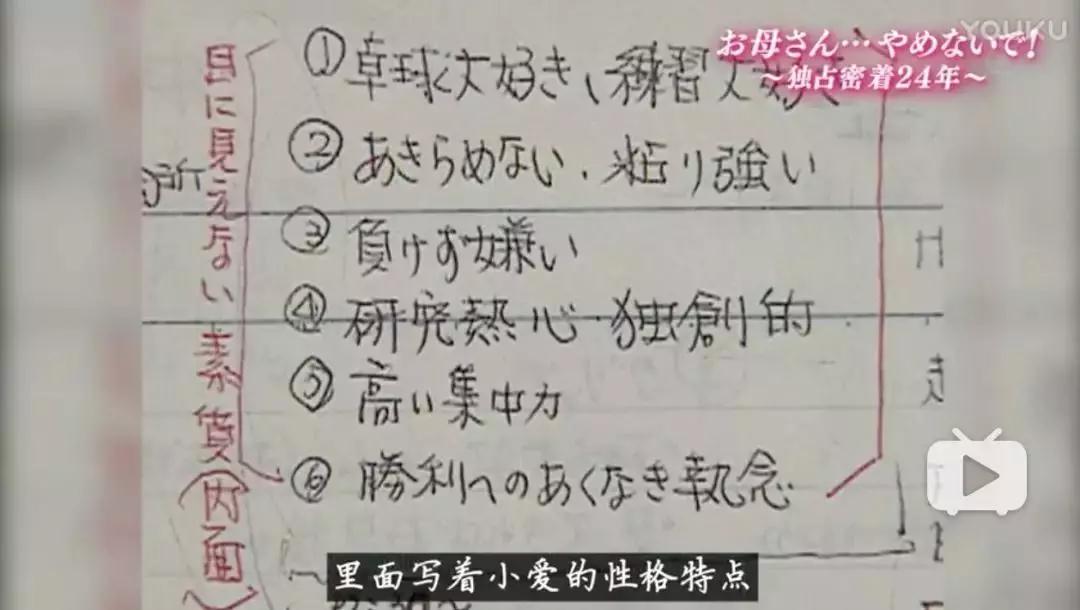 YOUKU
お母さん…やめないで!
〜独占密着24年〜
目に見えない素質(内面)
①卓球大好き、練習大好き
②あきらめない、粘り強い
③負けず嫌い
④研究熱心・独創的
⑤高い集中力
⑥勝利へのあくなき執念
所
里面写着小爱的性格特点